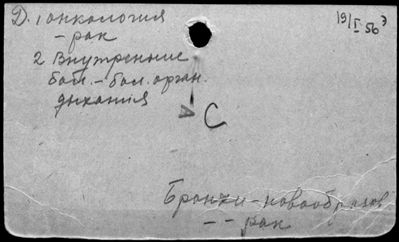 Д. 1 онкология
19/I 56 э
– рак
2 Внутренние
бол. – бол. орган.
дыхания
А
С
Бронхи – новообразов
– – рак